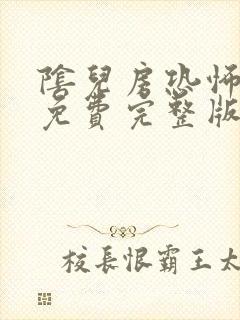 陰兒房恐怖
免費完整版
校長恨霸王太